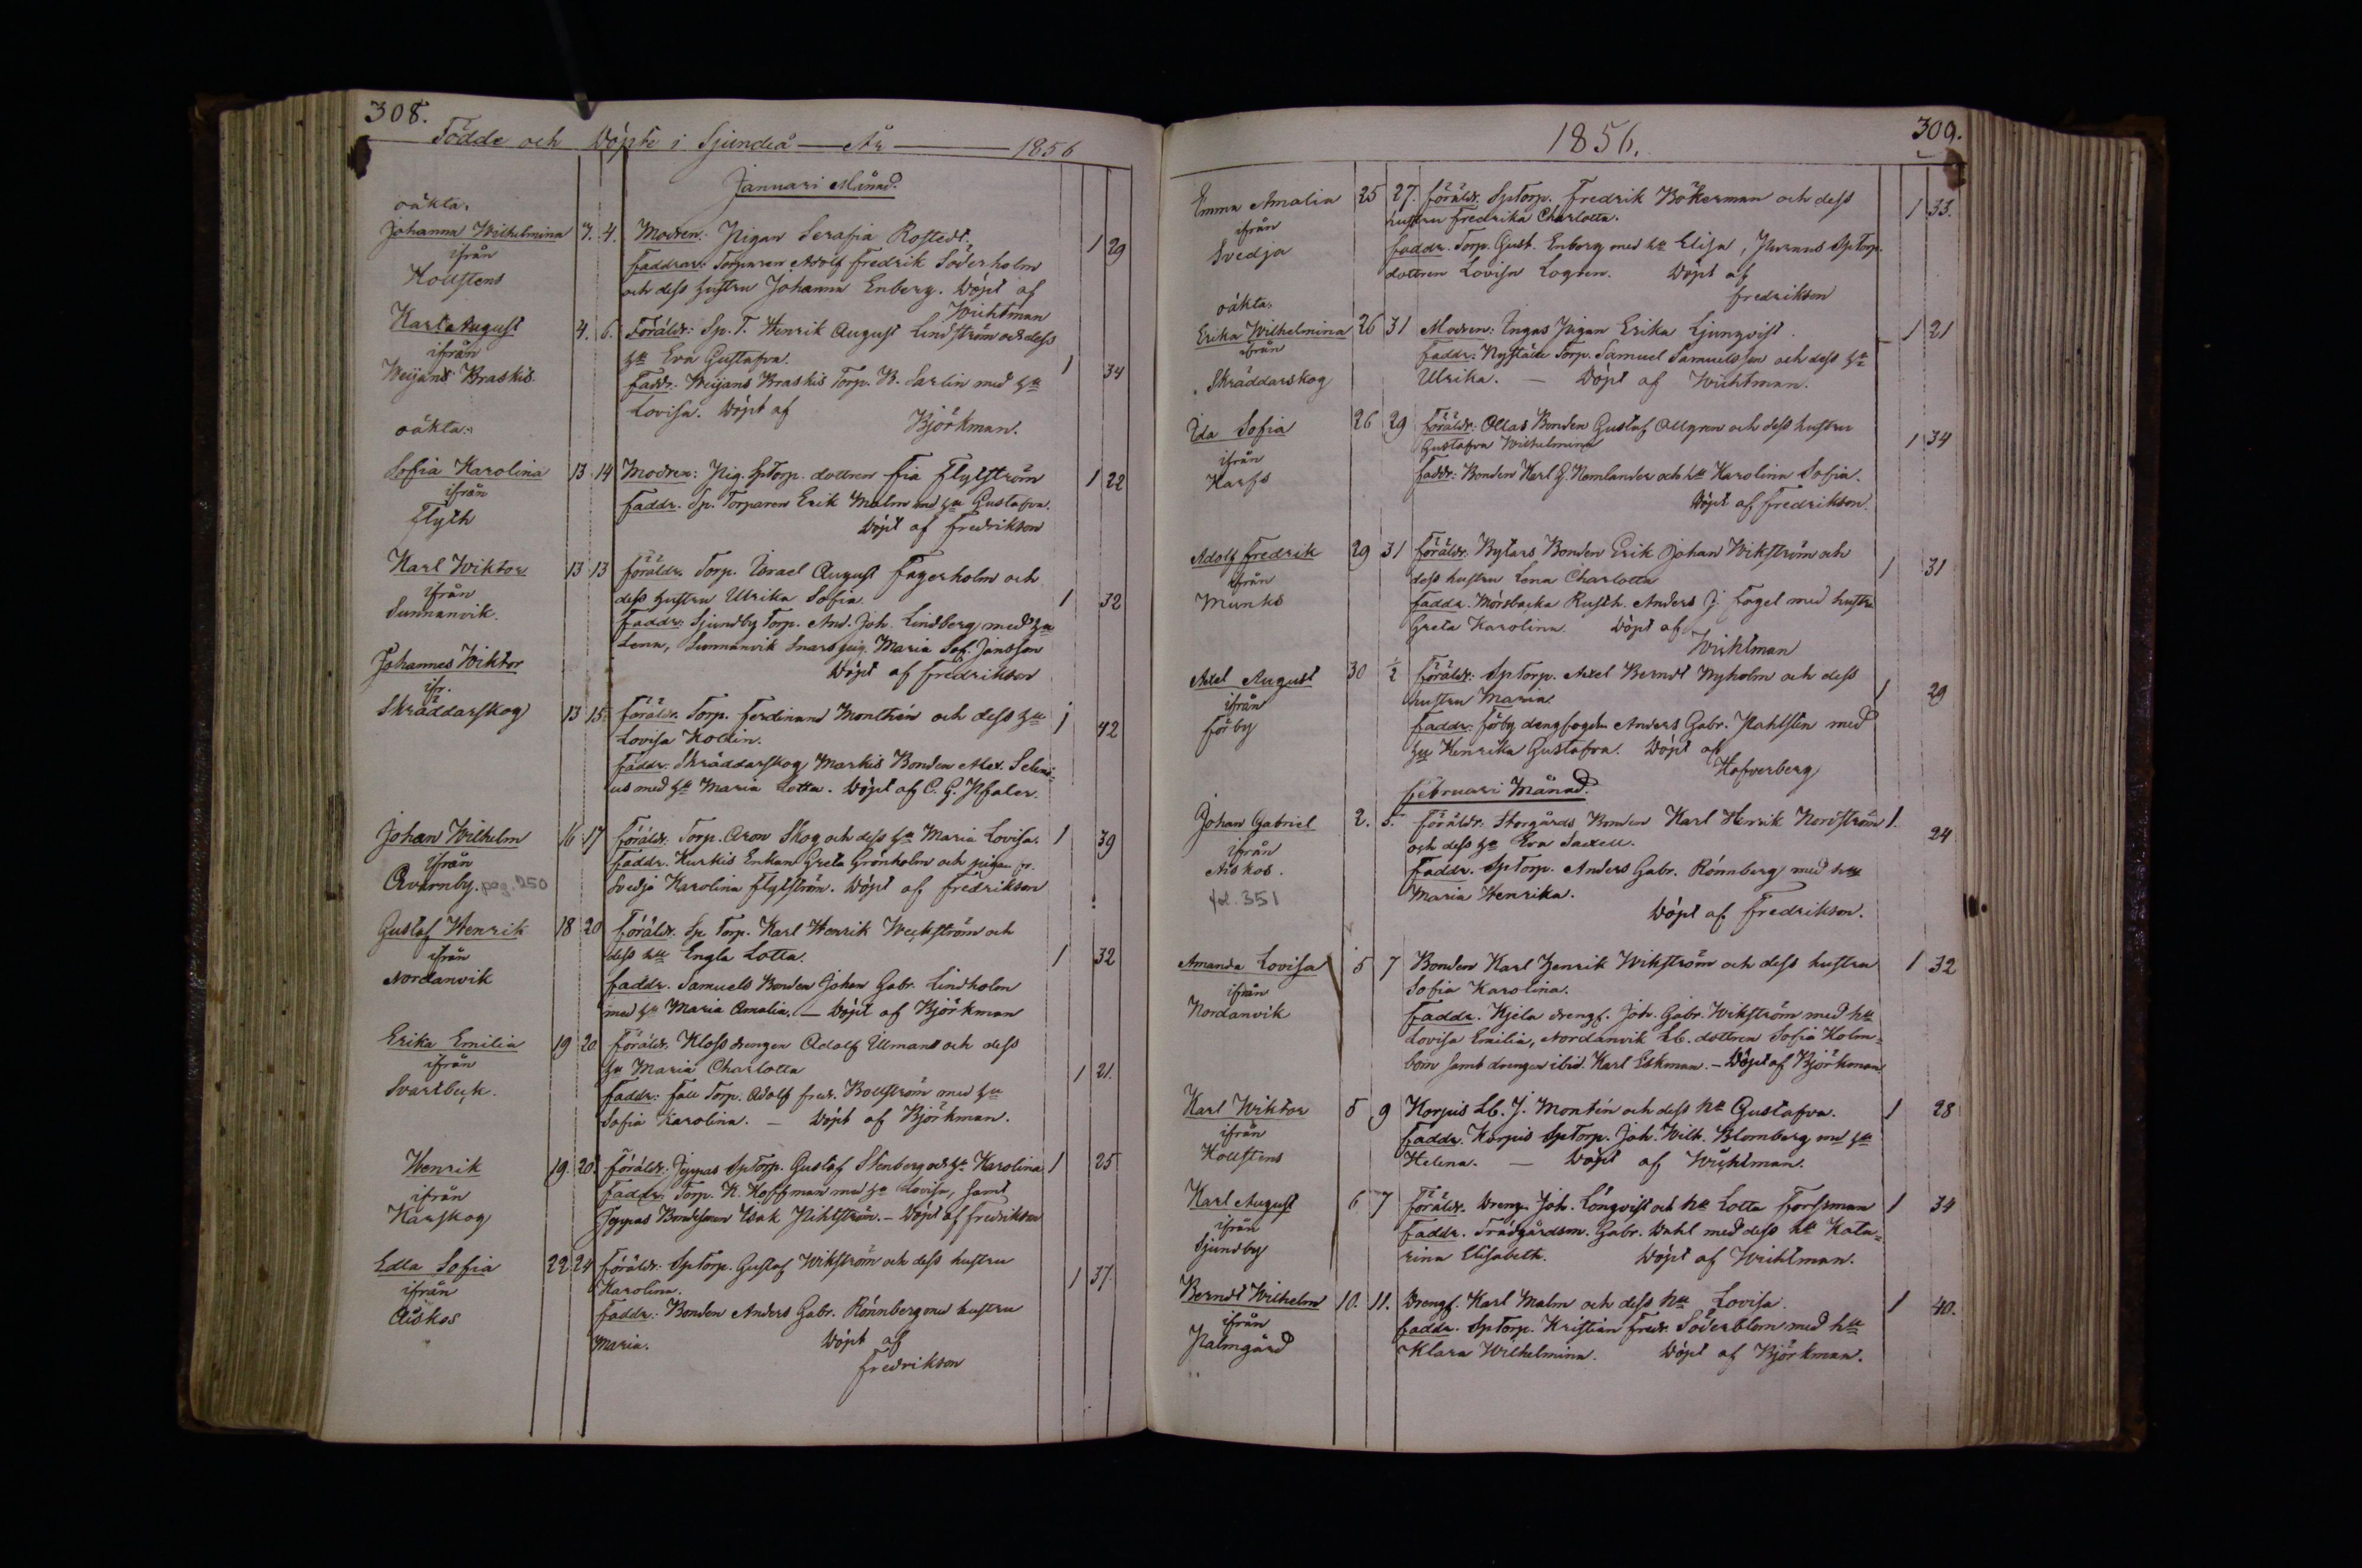 308.
Födde och Döpte i Sjundeå — År — 1856
Januari Månad.
oäkta.
Johanna Wilhelmina 3. 4. Modren: Pigan Serafia Rostedt. 1 29
ifrån Faddrar: Torparen Adolf Fredrik Söderholm
Kollstens och dess hustru Johanna Enberg. Döpt af
Wichtman
Karl August 4. 6. Föräldr: Sp. T. Henrik August Lindström och dess
ifrån hu Eva Gustafva. 1 34
Weijans Braskis Faddr: Weijans Braskis Torp. B. Sarlin med hu
Lovisa. Döpt af Björkman.
oäkta.
Sofia Karolina 13 14 Modren: Pig. SpTorp. dottren Fia Flytström 1 22
ifrån Faddr. Sp. Torparen Erik Malm med hu Gustafva.
Flyth Döpt af Fredrikson
Karl Wiktor 13 13 föräldr. Torp. Israel August Fagerholm och
ifrån dess hustru Ulrika Sofia. 1 32
Sunnanvik. Faddr: Sjundby Torp. And. Joh. Lindberg med hu
Lena, Sunnanvik Snars pig. Maria Sof. Jansson
Döpt af Fredrikson
Johannes Wiktor
ifr.
Skräddarskog 13 15 föräldr. Torp. Ferdinand Monthén och dess hu 1 42
Lovisa Kollin.
Faddr. Skräddarskog Markis Bonden Alex. Seleni-
us med hu Maria Lotta. Döpt af C. G. Pfaler.
Johan Wilhelm 16 17 föräldr. Torp. Aron Skog och dess hu Maria Lovisa. 1 39
ifrån Faddr. Kurkis Enkan Greta Grönholm och pigan fr.
Qvarnby. pag. 250 Svedja Karolina Flytström. Döpt af Fredrikson
Gustaf Henrik 18 20 föräldr. Sp. Torp. Karl Henrik Weckström och
ifrån dess hu Engla Lotta. 1 32
Nordanvik faddr. Samuels Bonden Johan Gabr. Lindholm
med hu Maria Amalia. — Döpt af Björkman
Erika Emilia 19 20 föräldr. Kloss drengen Adolf Ullmans och dess
ifrån hu Maria Charlotta 1 21.
Svartbeck. Faddr: Fall Torp. Adolf Fredr. Bollström med hu
Sofia Karolina. — Döpt af Björkman.
Henrik 19. 20 föräldr: Jeppas SpTorp. Gustaf Stenberg och hu Karolina 1 25
ifrån Faddr. Torp. K. Hoffman med hu Lovisa, samt
Karskog Jeppas Bondesonen Isak Pihlström. — Döpt af Fredrikson
Edla Sofia 22 24 föräldr: SpTorp. Gustaf Wikström och dess hustru
ifrån Karolina. 1 37
Aiskos Faddr: Bonden Anders Gabr. Rönnberg med hustru
Maria. Döpt af
Fredrikson
1856. 309.
Emma Amalia 25 27. föräldr. SpTorp. Fredrik Bökerman och dess
ifrån hustru Fredrika Charlotta. 1 33.
Svedja faddr. Torp. Gust. Enberg med hu Elisa, Purnus SpTorp.
dottren Lovisa Logren. Döpt af
Fredrikson
oäkta.
Erika Wilhelmina 26 31 Modren: Ingas Pigan Erika Ljungqvist. 1 21
ifrån Faddr: Nystäde Torp. Samuel Samuelsson och dess hu
Skräddarskog Ulrika. — Döpt af Wichtman.
Ida Sofia 26 29 föräldr: Ollas Bonden Gustaf Allgren och dess hustru
Gustafva Wilhelmina 1 34
ifrån faddr: Bonden Karl G. Nemlander och hu Karolina Sofia.
Karfs Döpt af Fredrikson.
Adolf Fredrik 29 31 föräldr. Bylars Bonden Erik Johan Wikström och
ifrån dess hustru Lena Charlotta 1 31
Munks Faddr. Mörsbacka Rusth. Anders J. Fogel med hustru
Greta Karolina. Döpt af
Wichtman
Axel August 30 1/2 föräldr: SpTorp. Axel Berndt Nyholm och dess
ifrån hustru Maria. 1 29
Förby faddr: Föby drengfogden Anders Gabr. Pahlstén med
hu Henrika Gustafva. Döpt af
Hofverberg
Februari Månad.
Johan Gabriel 2. 5. föräldr. Storgårds Bonden Karl Henrik Nordström 1.
ifrån och dess hu Eva Saxell. 24
Aiskos. Faddr. SpTorp. Anders Gabr. Rönnberg med hu
fol. 351 Maria Henrika.
Döpt af Fredrikson.
Amanda Lovisa 5 7 Bonden Karl Henrik Wikström och dess hustru 1 32
ifrån Sofia Karolina.
Nordanvik Faddr. Kjela drengf. Joh. Gabr. Wikström med hu
Lovisa Emilia, Nordanvik Lb. dottren Sofia Holm-
bom samt drengen ibid. Karl Eskman. — Döpt af Björkman.
Karl Wiktor 5 9 Korpis Lb. J. Montén och dess hu Gustafva. 1 28
ifrån Faddr. Korpis SpTorp. Joh. Wilh. Blomberg med hu
Kollstens Helena. — Döpt af Wichtman.
Karl August 6 7 föräldr. Dreng. Joh. Löngvist och hu Lotta Forssman 1 34
ifrån Faddr. Trädgårdsm. Gabr. Dahl med dess hu Kata-
Sjundby rina Elisabeth. Döpt af Wichtman.
Berndt Wilhelm 10. 11. Drengf. Karl Malm och dess hu Lovisa. 1 40.
ifrån faddr. SpTorp. Kristian Fredr. Söderblom med hu
Palmgård Klara Wilhelmina. Döpt af Björkman.